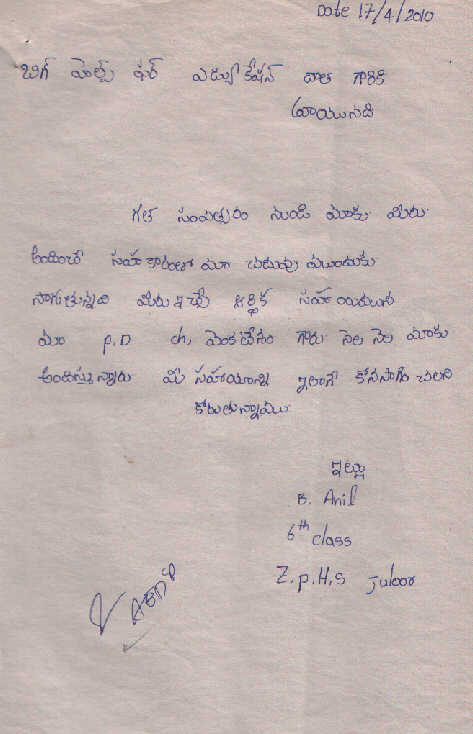 Date 17/4/2010
బిగ్ హెల్ప్ ఫర్ ఎడ్యుకేషన్ దాత గారికి
వ్రాయునది
గత సంవత్సరం నుండి మాకు మీరు
అందించే సహకారంతో మా చదువు ముందుకు
సాగుతున్నది మీరు ఇచ్చే ఆర్థిక సహాయములను
మా P.D ch. వెంకటేశం గారు నెల నెల మాకు
అందిస్తున్నారు మీ సహాయాన్ని ఇలాగే కొనసాగించాలని
కోరుతున్నాము.
ఇట్లు
B. Anil
6th class
Z.P.H.S Juloor